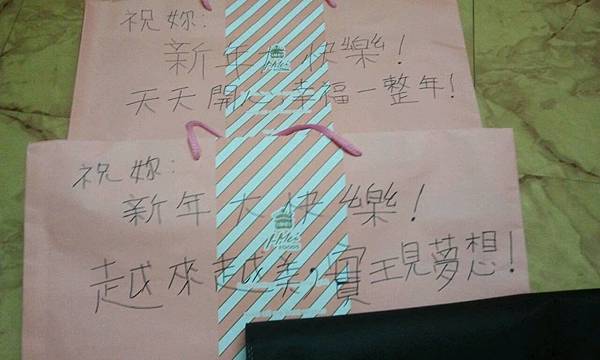 祝妳:
新年大快樂!
天天開心 幸福一整年!
祝妳:
新年大快樂!
I-Mei
FOODS
越來越美,實現夢想!